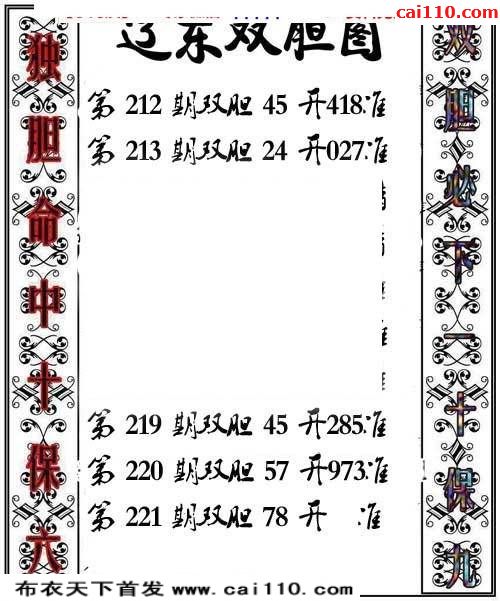 cai110.com
辽东双胆图
独胆命中十保六
第 212 期双胆 45 开418准
第 213 期双胆 24 开027准
第 219 期双胆 45 开285准
第 220 期双胆 57 开973准
第 221 期双胆 78 开 准
双胆必下一十保九
布衣天下首发 www.cai110.com